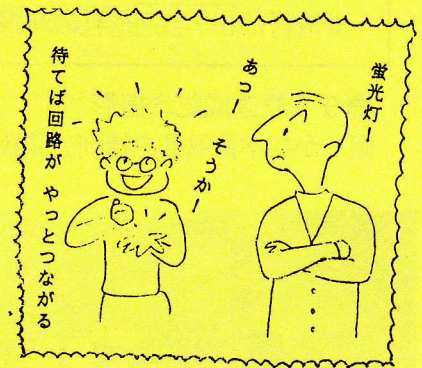 蛍光灯ー
あっー
そうかー
待てば回路が やっとつながる